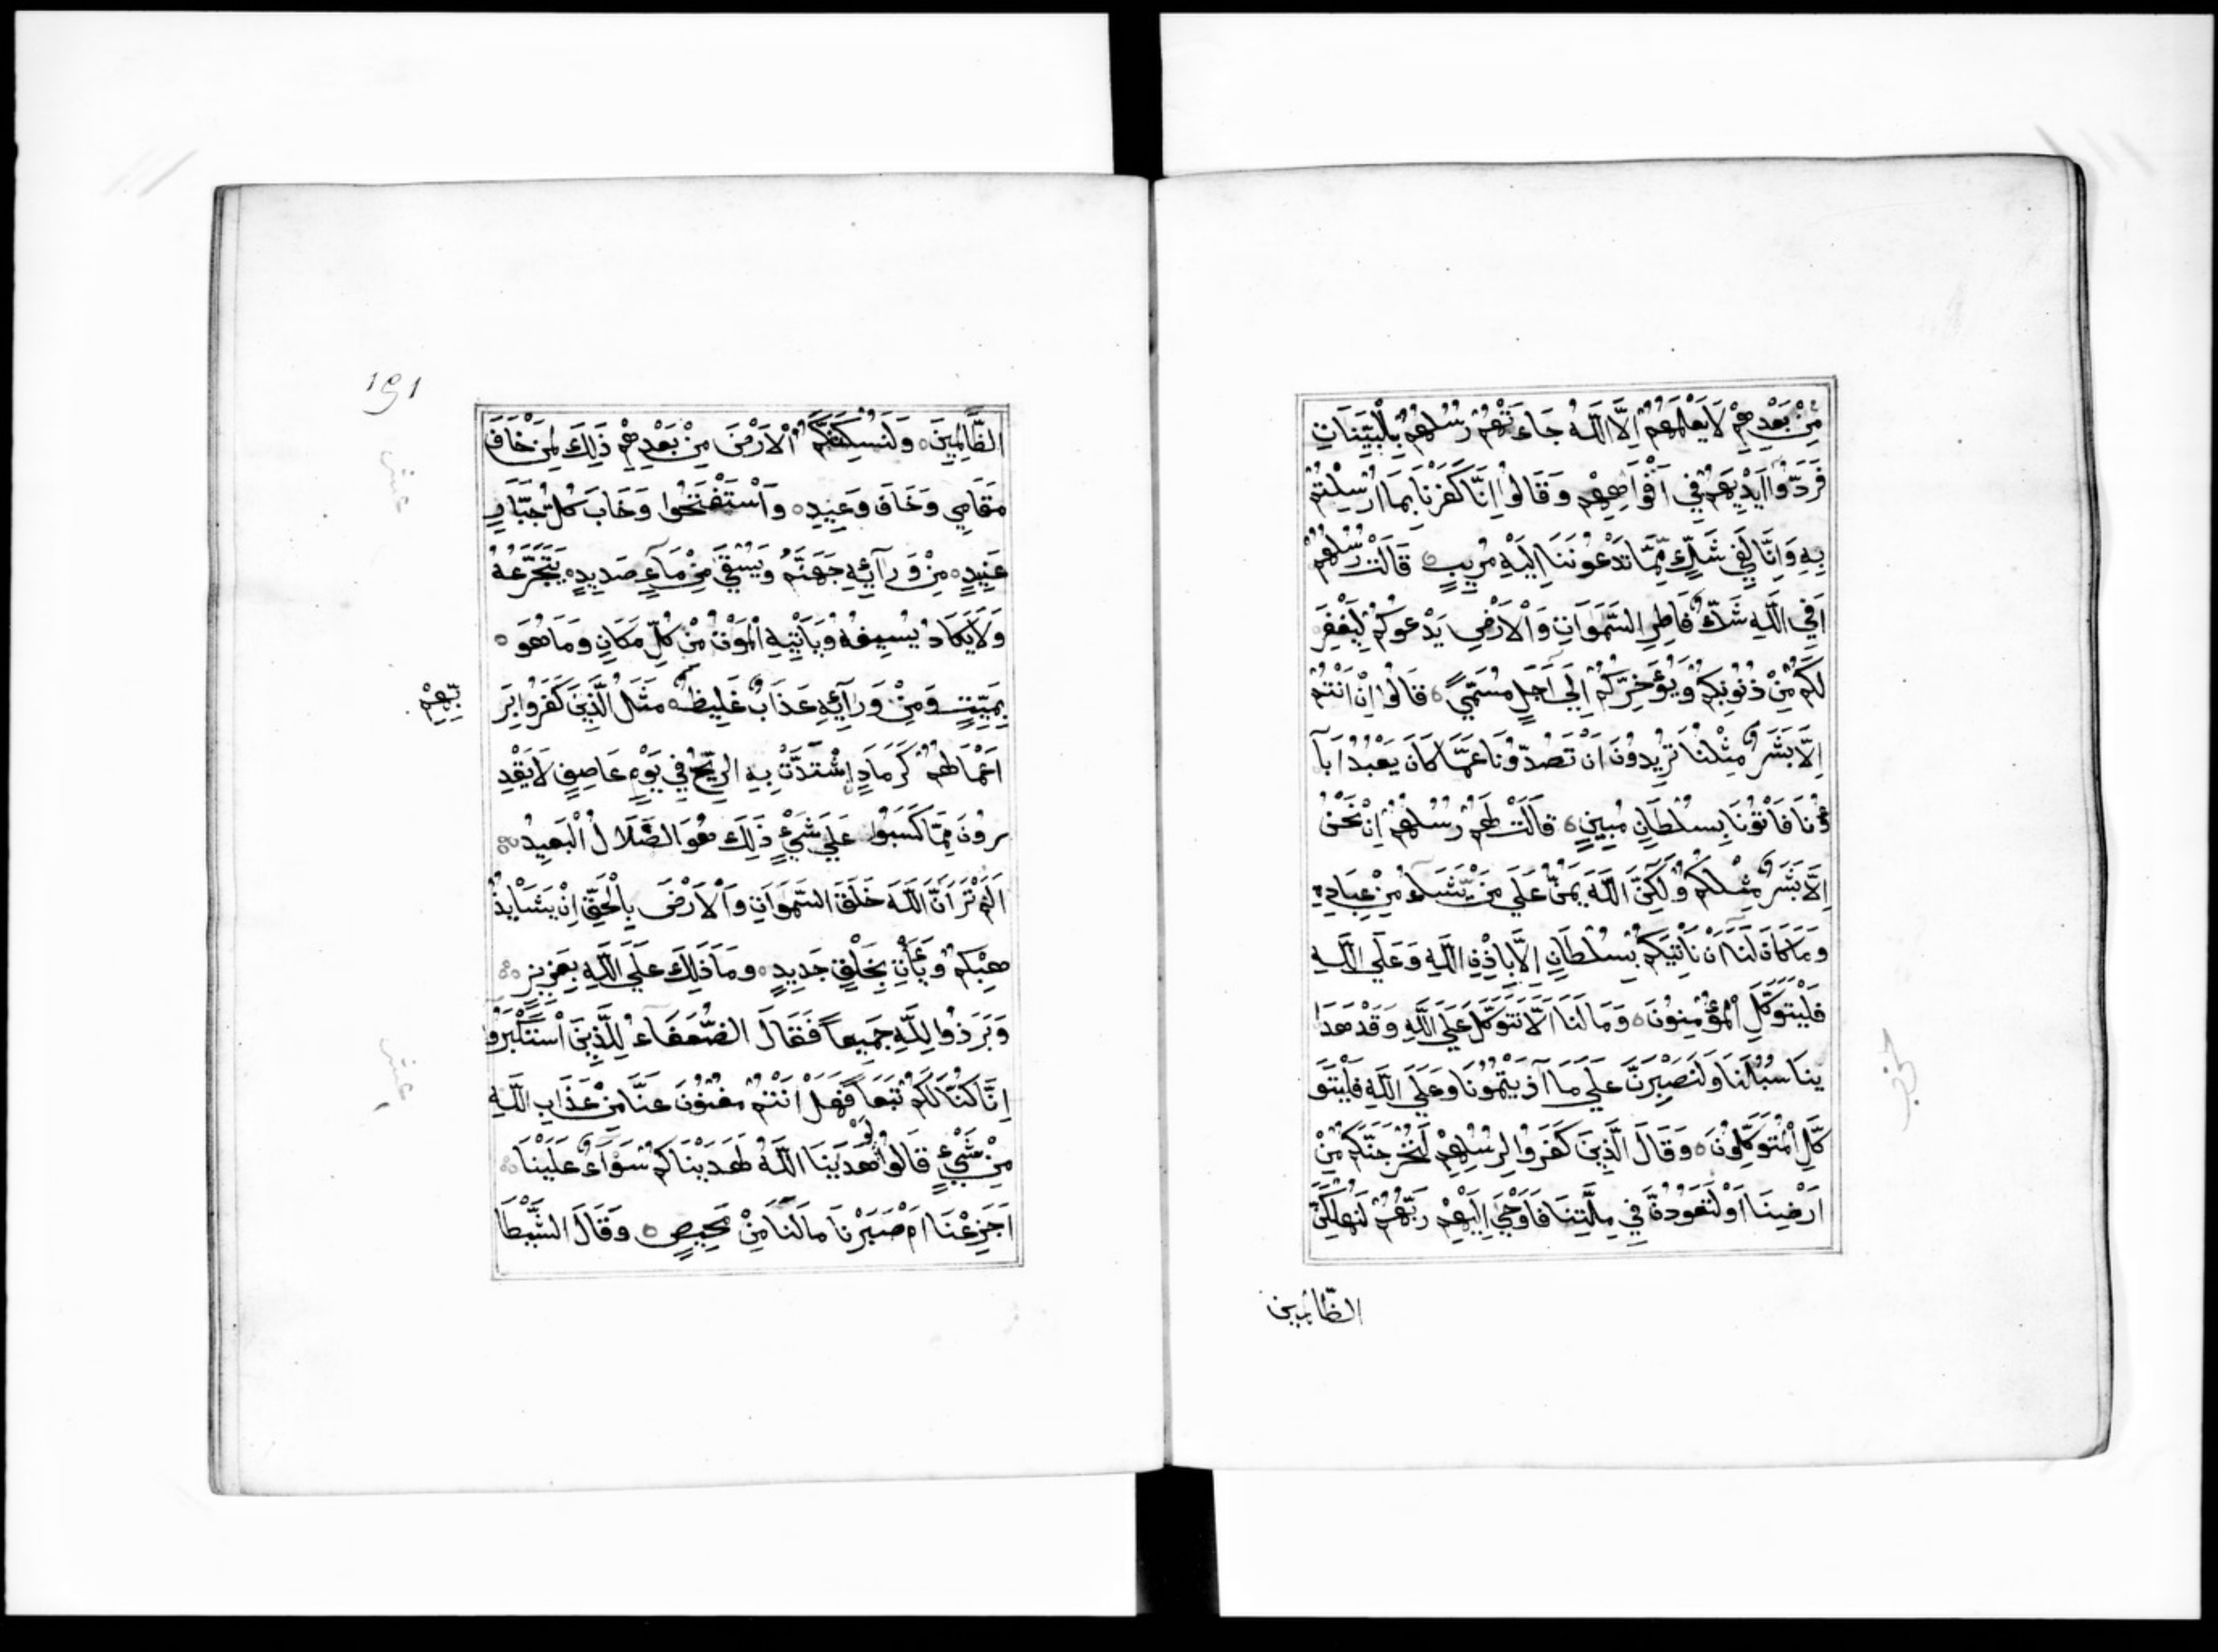 مِنْ بَعْدِهِمْ لَا يَعْلَمُهُمْ اِلَّا اللَّهُ جَاءَتْهُمْ رُسُلُهُمْ بِالْبَيِّنَاتِ
فَرَدُّوْا اَيْدِيَهُمْ فِي اَفْوَاهِهِمْ وَقَالُوْا اِنَّا كَفَرْنَا بِمَا اُرْسِلْتُمْ
بِهِ وَاِنَّا لَفِي شَكٍّ مِمَّا تَدْعُوْنَنَا اِلَيْهِ مُرِيْبٍ قَالَتْ رُسُلُهُمْ
اَفِي اللَّهِ شَكٌّ فَاطِرِ السَّمَوَاتِ وَالْاَرْضِ يَدْعُوْكُمْ لِيَغْفِرَ
لَكُمْ مِنْ ذُنُوْبِكُمْ وَيُؤَخِّرَكُمْ اِلَى اَجَلٍ مُسَمًّى قَالُوْا اِنْ اَنْتُمْ
اِلَّا بَشَرٌ مِثْلُنَا تُرِيْدُوْنَ اَنْ تَصُدُّوْنَا عَمَّا كَانَ يَعْبُدُ اٰبَآ
ؤُنَا فَأْتُوْنَا بِسُلْطَانٍ مُبِيْنٍ قَالَتْ لَهُمْ رُسُلُهُمْ اِنْ نَحْنُ
اِلَّا بَشَرٌ مِثْلُكُمْ وَلَكِنَّ اللَّهَ يَمُنُّ عَلَى مَنْ يَّشَاءُ مِنْ عِبَادِهِ
وَمَا كَانَ لَنَا اَنْ نَأْتِيَكُمْ بِسُلْطَانٍ اِلَّا بِاِذْنِ اللَّهِ وَعَلَى اللَّهِ
فَلْيَتَوَكَّلِ الْمُؤْمِنُوْنَ وَمَا لَنَا اَلَّا نَتَوَكَّلَ عَلَى اللَّهِ وَقَدْ هَدَا
ينَا سُبُلَنَا وَلَنَصْبِرَنَّ عَلَى مَا اٰذَيْتُمُوْنَا وَعَلَى اللَّهِ فَلْيَتَوَ
كَّلِ الْمُتَوَكِّلُوْنَ وَقَالَ الَّذِيْنَ كَفَرُوْا لِرُسُلِهِمْ لَنُخْرِجَنَّكُمْ مِنْ
اَرْضِنَا اَوْ لَتَعُوْدُنَّ فِي مِلَّتِنَا فَاَوْحَى اِلَيْهِمْ رَبُّهُمْ لَنُهْلِكَنَّ
الظَّالِمِين
191
الظَّالِمِيْنَ وَلَنُسْكِنَنَّكُمُ الْاَرْضَ مِنْ بَعْدِهِمْ ذَلِكَ لِمَنْ خَافَ
مَقَامِي وَخَافَ وَعِيْدِ وَاسْتَفْتَحُوا وَخَابَ كُلُّ جَبَّارٍ
عَنِيْدٍ مِنْ وَرَآئِهِ جَهَنَّمُ وَيُسْقَى مِنْ مَآءٍ صَدِيْدٍ يَتَجَرَّعُهُ
وَلَا يَكَادُ يُسِيْغُهُ وَيَأْتِيْهِ الْمَوْتُ مِنْ كُلِّ مَكَانٍ وَمَا هُوَ
بِمَيِّتٍ وَمِنْ وَرَآئِهِ عَذَابٌ غَلِيْظٌ مَثَلُ الَّذِيْنَ كَفَرُوا بِرَ
بِّهِمْ
اَعْمَالُهُمْ كَرَمَادٍ اشْتَدَّتْ بِهِ الرِّيْحُ فِي يَوْمٍ عَاصِفٍ لَا يَقْدِ
رُوْنَ مِمَّا كَسَبُوْا عَلَى شَيْءٍ ذَلِكَ هُوَ الضَّلَالُ الْبَعِيْدُ
اَلَمْ تَرَ اَنَّ اللَّهَ خَلَقَ السَّمَوَاتِ وَالْاَرْضَ بِالْحَقِّ اِنْ يَشَأْ يُذْ
هِبْكُمْ وَيَأْتِ بِخَلْقٍ جَدِيْدٍ وَمَا ذَلِكَ عَلَى اللَّهِ بِعَزِيْزٍ
وَبَرَزُوا لِلَّهِ جَمِيْعاً فَقَالَ الضُّعَفَاءُ لِلَّذِيْنَ اسْتَكْبَرُوا
اِنَّا كُنَّا لَكُمْ تَبَعاً فَهَلْ اَنْتُمْ مُغْنُوْنَ عَنَّا مِنْ عَذَابِ اللَّهِ
مِنْ شَيْءٍ قَالُوْا لَوْ هَدَيٰنَا اللَّهُ لَهَدَيْنَاكُمْ سَوَاءٌ عَلَيْنَا
اَجَزِعْنَا اَمْ صَبَرْنَا مَا لَنَا مِنْ مَحِيْصٍ وَقَالَ الشَّيْطَا